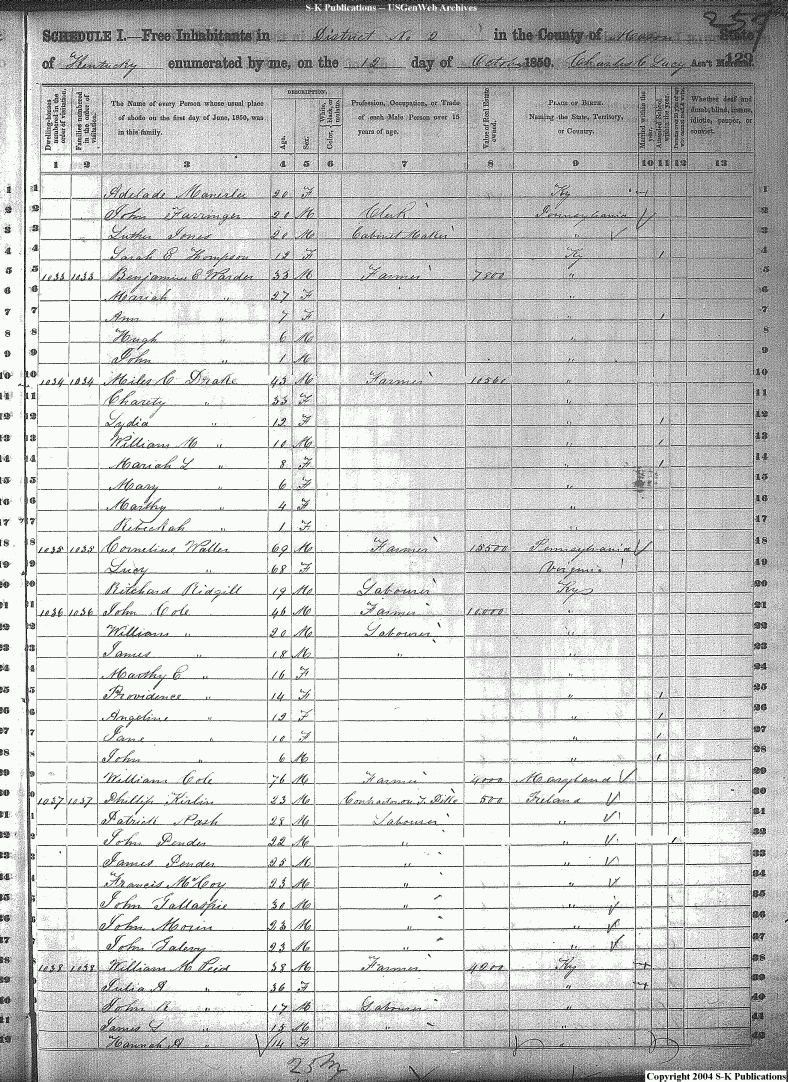 S-K Publications -- USGenWeb Archives
257
SCHEDULE I.—Free Inhabitants in District No 2 in the County of Mason State
of Kentucky enumerated by me, on the 12 day of October 1850. Charles C Lucy Ass't Marshal. 129
Dwelling-houses numbered in the order of visitation.
Families numbered in the order of visitation.
The Name of every Person whose usual place of abode on the first day of June, 1850, was in this family.
DESCRIPTION.
Age.
Sex.
White, black, or mulatto.
Color,
Profession, Occupation, or Trade of each Male Person over 15 years of age.
Value of Real Estate owned.
PLACE OF BIRTH.
Naming the State, Territory, or Country.
Married within the year.
Attended School within the year.
Whether deaf and dumb, blind, insane, idiotic, pauper, or convict.
1 2 3 4 5 6 7 8 9 10 11 12 13
1 Adelade 20 F Ky 1
2 John Farringer 20 M Clerk Pennsylvania 2
3 Luther Jones 20 M Cabinet Maker " 3
4 Sarah E Thompson 12 F Ky 4
5 1033 1033 Benjamin C Warder 33 M Farmer 7800 " 5
6 Mariah " 27 F " 6
7 Ann " 7 F " 7
8 Hugh " 6 M " 8
9 John " 1 M " 9
10 1034 1034 Miles C Drake 43 M Farmer 10560 " 10
11 Charety " 33 F " 11
12 Lydia " 12 F " 12
13 William M " 10 M " 13
14 Mariah L " 8 F " 14
15 Mary " 6 F " 15
16 Marthy " 4 F " 16
17 Rebickah " 1 F " 17
18 1035 1035 Cornelius Walter 69 M Farmer 15500 Pennsylvania 18
19 Lucy " 68 F Virginia 19
20 Ritchard Ridgill 19 M Labourer Ky 20
21 1036 1036 John Cole 46 M Farmer 10,000 " 21
22 William " 20 M Labourer " 22
23 James " 18 M " " 23
24 Marthy E " 16 F " 24
25 Providence " 14 F " 25
26 Angeline " 12 F " 26
27 Jane " 10 F " 27
28 John " 6 M " 28
29 William Cole 76 M Farmer 4000 Maryland 29
30 1037 1037 Phillip Kirlin 23 M 500 Ireland 30
31 Patrick Nash 28 M Labourer " 31
32 John Pender 22 M " " 32
33 James Pender 25 M " " 33
34 Francis McCoy 23 M " " 34
35 John Gallaspie 30 M " " 35
36 John 23 M " " 36
37 John 23 M " " 37
38 1038 1038 William M Reid 38 M Farmer 4200 Ky 38
39 Julia A " 36 F " 39
40 John R " 17 M Labourer " 40
41 James S " 15 M " " 41
42 Hannah A " 14 F 42
Copyright 2004 S-K Publications